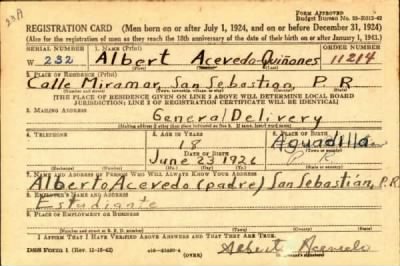 23A
FORM APPROVED
Budget Bureau No. 33-R012-42
REGISTRATION CARD—(Men born on or after July 1, 1924, and on or before December 31, 1924)
(Also for the registration of men as they reach the 18th anniversary of the date of their birth on or after January 1, 1943.)
SERIAL NUMBER 1. NAME (Print) ORDER NUMBER
W 232 Albert Acevedo-Quiñones 11214
2. PLACE OF RESIDENCE (Print)
Calle Miramar San Sebastian P. R
[THE PLACE OF RESIDENCE GIVEN ON LINE 2 ABOVE WILL DETERMINE LOCAL BOARD
JURISDICTION; LINE 2 OF REGISTRATION CERTIFICATE WILL BE IDENTICAL]
3. MAILING ADDRESS
General Delivery
4. TELEPHONE 5. AGE IN YEARS 6. PLACE OF BIRTH
18 Aguadilla
DATE OF BIRTH P R
June 23 1926
7. NAME AND ADDRESS OF PERSON WHO WILL ALWAYS KNOW YOUR ADDRESS
Alberto Acevedo (padre) San Sebastián, P.R.
8. EMPLOYER'S NAME AND ADDRESS
Estudiante
9. PLACE OF EMPLOYMENT OR BUSINESS
I AFFIRM THAT I HAVE VERIFIED ABOVE ANSWERS AND THAT THEY ARE TRUE.
DSS Form 1 (OVER) Albert Acevedo